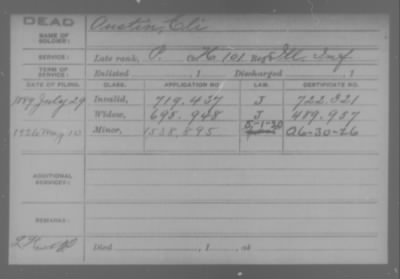 DEAD
NAME OF SOLDIER: Austin, Eli
SERVICE: Late rank, P. Co. K, 101 Reg't Ill. Inf
TERM OF SERVICE: Enlisted , 1 Discharged , 1
DATE OF FILING. CLASS. APPLICATION NO. LAW. CERTIFICATE NO.
1889 July 29 Invalid, 719.437 J 722.321
Widow, 695.948 J 489.957
1926 May 10 Minor, 1538,895 5-1-20 06-30-26
ADDITIONAL SERVICES:
REMARKS:
Died , 1 , at